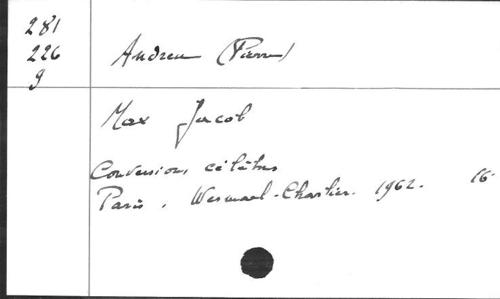 281
226 Andreu (Pierre)
9
Max Jacob
Conversions célèbres
Paris, Wesmael-Charlier. 1962. 16